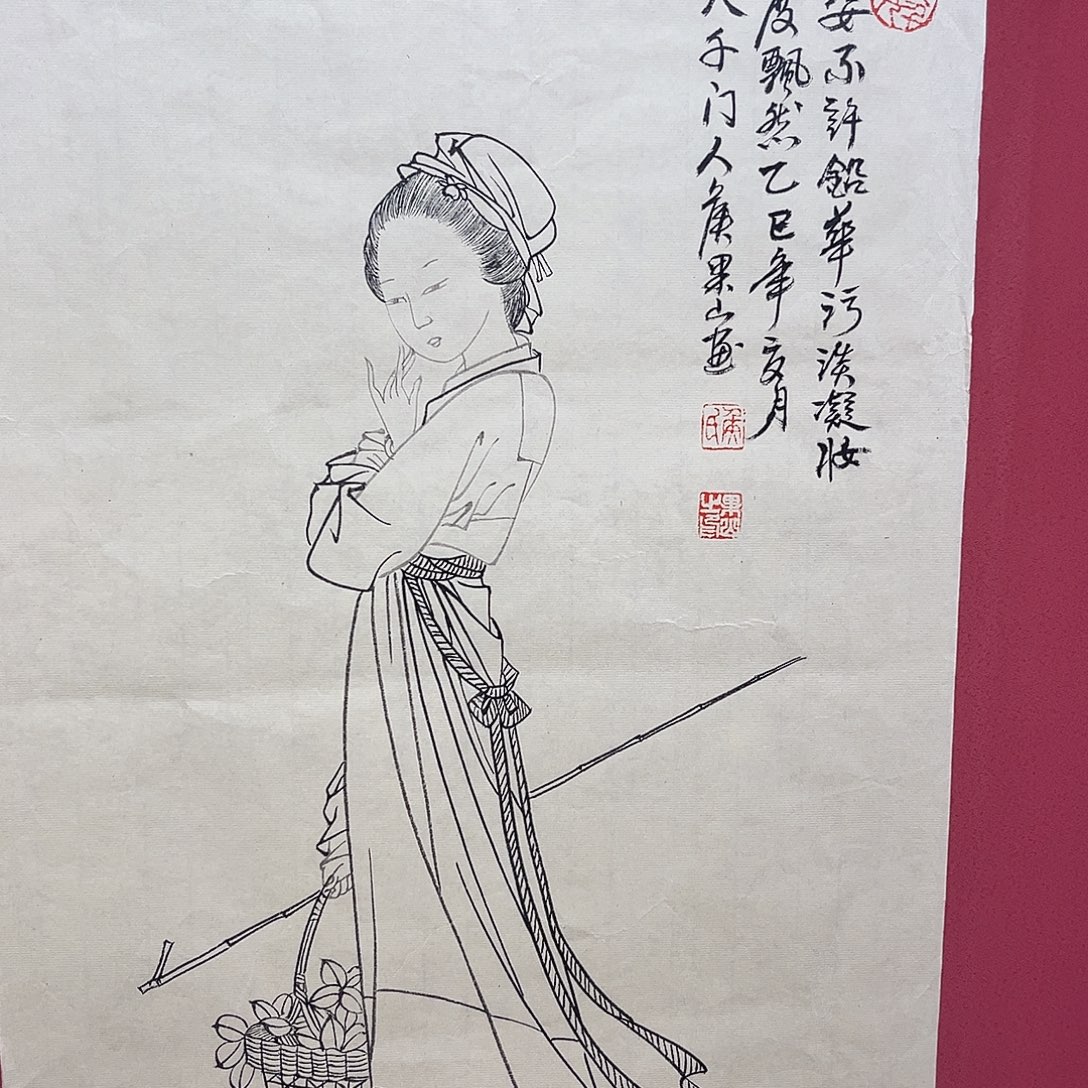 姿不許鉛華污淡凝妝
度飄然乙巳年夏月
大千门人侯果山畫
侯氏